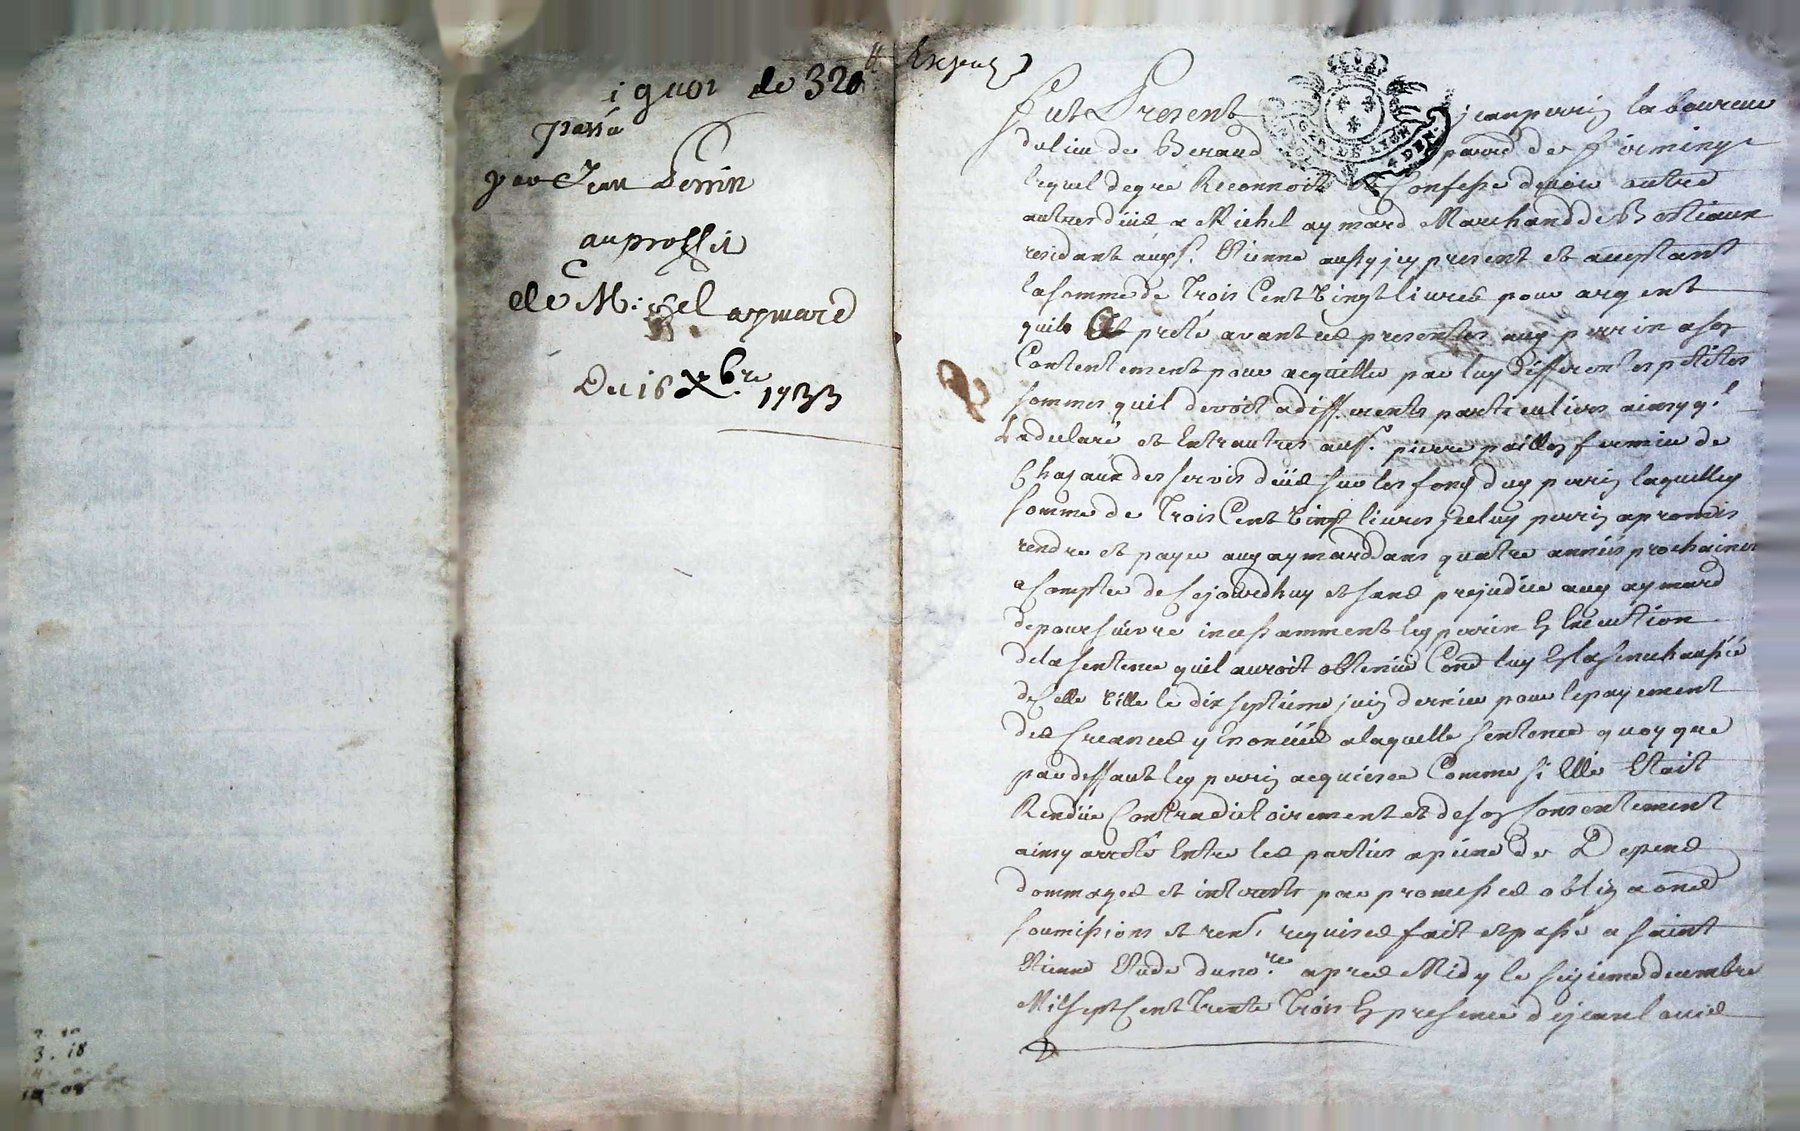 de 320 ℔
passé
par Jean Perrin
au proffit
de Michel aymard
Du 16 Xbre. 1733
fut Present jean perrin laboureur
du lieu de Beraud parr. de firminy
lequel de gre Reconnoit et Confesse devoir outre
autres düe a Michel aymard Marchand de Bestiaux
residant aud. st. Etienne aussy icy present et aceptant
la somme de Trois Cent Vingt livres pour argent
quil a preté avant ces presentes aud perrin a son
Contentement pour acquitter par luy differentes petites
sommes quil devoit a differents particuliers ainsy ql.
a declaré et Entrautres au sr. pierre paillon fermier de
des servis düe sur les fons dud perrin laquelle
somme de Trois Cent Vingt livres jceluy perrin a promis
rendre et payer aud aymard dans quatre années prochaines
a Compter de Cejourdhuy et sans prejudice aud aymard
de poursuivre incessamment led perrin En Execution
de la sentence quil auroit obtenüe Cond luy En la senechaussée
de Cette Ville le dix septieme juin dernier pour le payement
des Creances y Enoncées a laquelle sentence quoy que
par deffaut led perrin acquiesce Comme si Elle Etait
Rendüe Contradictoirement et de son Consentement
ainsy arreté Entre les parties a peine de Depens
dommages et interets par promesses obligaons
soumissions et renc. requises fait et passé a saint
Etienne Etude du nore. apres Midy le seizieme decembre
Mil sept Cent Trente Trois En presence de jean louis
3. 18